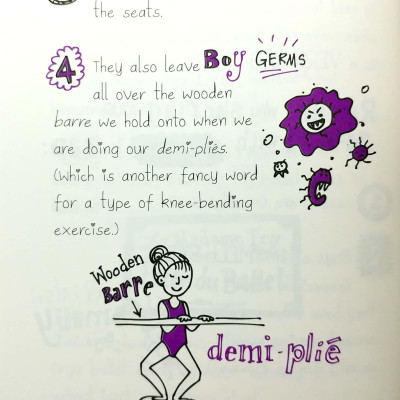 the seats.
4 They also leave Boy GERMS
all over the wooden
barre we hold onto when we
are doing our demi-plies.
(Which is another fancy word
for a type of knee-bending
exercise.)
Wooden
Barre
demi-plié